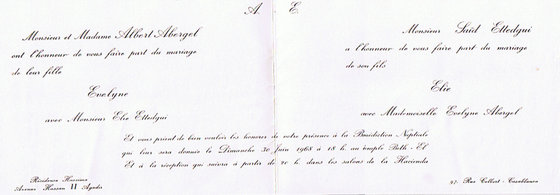 A. E.
Monsieur et Madame Albert Abergel
ont l'honneur de vous faire part du mariage
de leur fille
Evelyne
avec Monsieur Elie Ettedgui
Monsieur Saïd Ettedgui
a l'honneur de vous faire part du mariage
de son fils
Elie
avec Mademoiselle Evelyne Abergel
Et vous prient de bien vouloir les honorer de votre présence à la Bénédiction Nuptiale
qui leur sera donnée le Dimanche 30 Juin 1968 à 18 h. au temple Beth-El
Et à la réception qui suivra à partir de 20 h. dans les salons de la Hacienda
Résidence
Avenue Hassan II Agadir
97, Rue Colbert - Casablanca